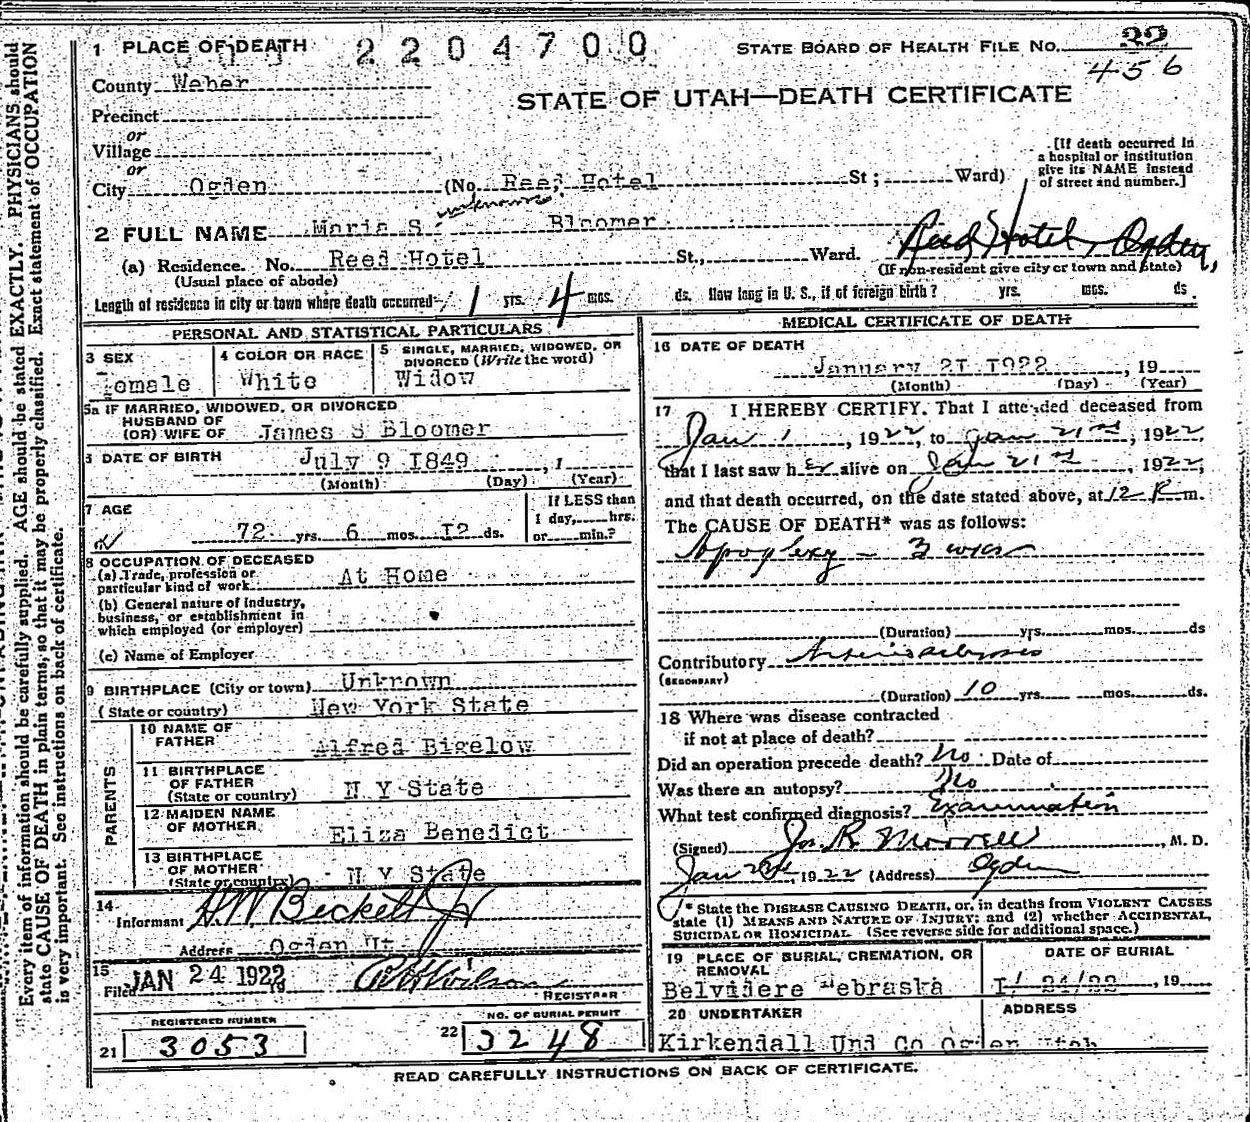 1 PLACE OF DEATH 2204700 STATE BOARD OF HEALTH FILE NO. 32
456
County Weber
STATE OF UTAH—DEATH CERTIFICATE
Precinct
or
Village
or
City Ogden (No. Reed Hotel St; Ward)
[If death occurred in
a hospital or institution
give its NAME instead
of street and number.]
unknown
2 FULL NAME Maria S Bloomer
Reed Hotel, Ogden,
(a) Residence. No. Reed Hotel St., Ward.
(Usual place of abode) (If non-resident give city or town and state)
Length of residence in city or town where death occurred 1 yrs. 4 mos. ds. How long in U. S., if of foreign birth? yrs. mos. ds.
PERSONAL AND STATISTICAL PARTICULARS
3 SEX 4 COLOR OR RACE 5 SINGLE, MARRIED, WIDOWED, OR
DIVORCED (Write the word)
Female White Widow
5a IF MARRIED, WIDOWED, OR DIVORCED
HUSBAND OF
(OR) WIFE OF James S Bloomer
6 DATE OF BIRTH July 9 1849, 1
(Month) (Day) (Year)
7 AGE If LESS than
1 day, hrs.
72 yrs. 6 mos. 12 ds. or min.?
8 OCCUPATION OF DECEASED
(a) Trade, profession or
particular kind of work At Home
(b) General nature of industry,
business, or establishment in
which employed (or employer)
(c) Name of Employer
9 BIRTHPLACE (City or town) Unknown
(State or country) New York State
PARENTS
10 NAME OF
FATHER Alfred Bigelow
11 BIRTHPLACE
OF FATHER
(State or country) N Y State
12 MAIDEN NAME
OF MOTHER Eliza Benedict
13 BIRTHPLACE
OF MOTHER
(State or country) N Y State
14
Informant H W Beckett Jr
Address Ogden Ut
15
Filed JAN 24 1922 Wilson
REGISTRAR
REGISTERED NUMBER NO. OF BURIAL PERMIT
21 3053 22 3248
MEDICAL CERTIFICATE OF DEATH
16 DATE OF DEATH
January 21 1922, 19
(Month) (Day) (Year)
17 I HEREBY CERTIFY. That I attended deceased from
Jan 1, 1922, to Jan 21st, 1922,
that I last saw her alive on Jan 21st, 1922,
and that death occurred, on the date stated above, at 12 P m.
The CAUSE OF DEATH* was as follows:
Apoplexy - 3 wks
(Duration) yrs. mos. ds
Contributory Arteriosclerosis
(SECONDARY)
(Duration) 10 yrs. mos. ds.
18 Where was disease contracted
if not at place of death?
Did an operation precede death? No Date of
Was there an autopsy? No
What test confirmed diagnosis? Examination
(Signed) Jos R Morrell, M. D.
Jan 23rd, 1922 (Address) Ogden
* State the DISEASE CAUSING DEATH, or, in deaths from VIOLENT CAUSES
state (1) MEANS AND NATURE OF INJURY; and (2) whether ACCIDENTAL,
SUICIDAL OR HOMICIDAL. (See reverse side for additional space.)
19 PLACE OF BURIAL, CREMATION, OR
REMOVAL DATE OF BURIAL
Belvidere Nebraska 1/ 24/22, 19
20 UNDERTAKER ADDRESS
Kirkendall Und Co Ogden Utah
READ CAREFULLY INSTRUCTIONS ON BACK OF CERTIFICATE.
Every item of information should be carefully supplied. AGE should be stated EXACTLY. PHYSICIANS should
state CAUSE OF DEATH in plain terms, so that it may be properly classified. Exact statement of OCCUPATION
is very important. See instructions on back of certificate.